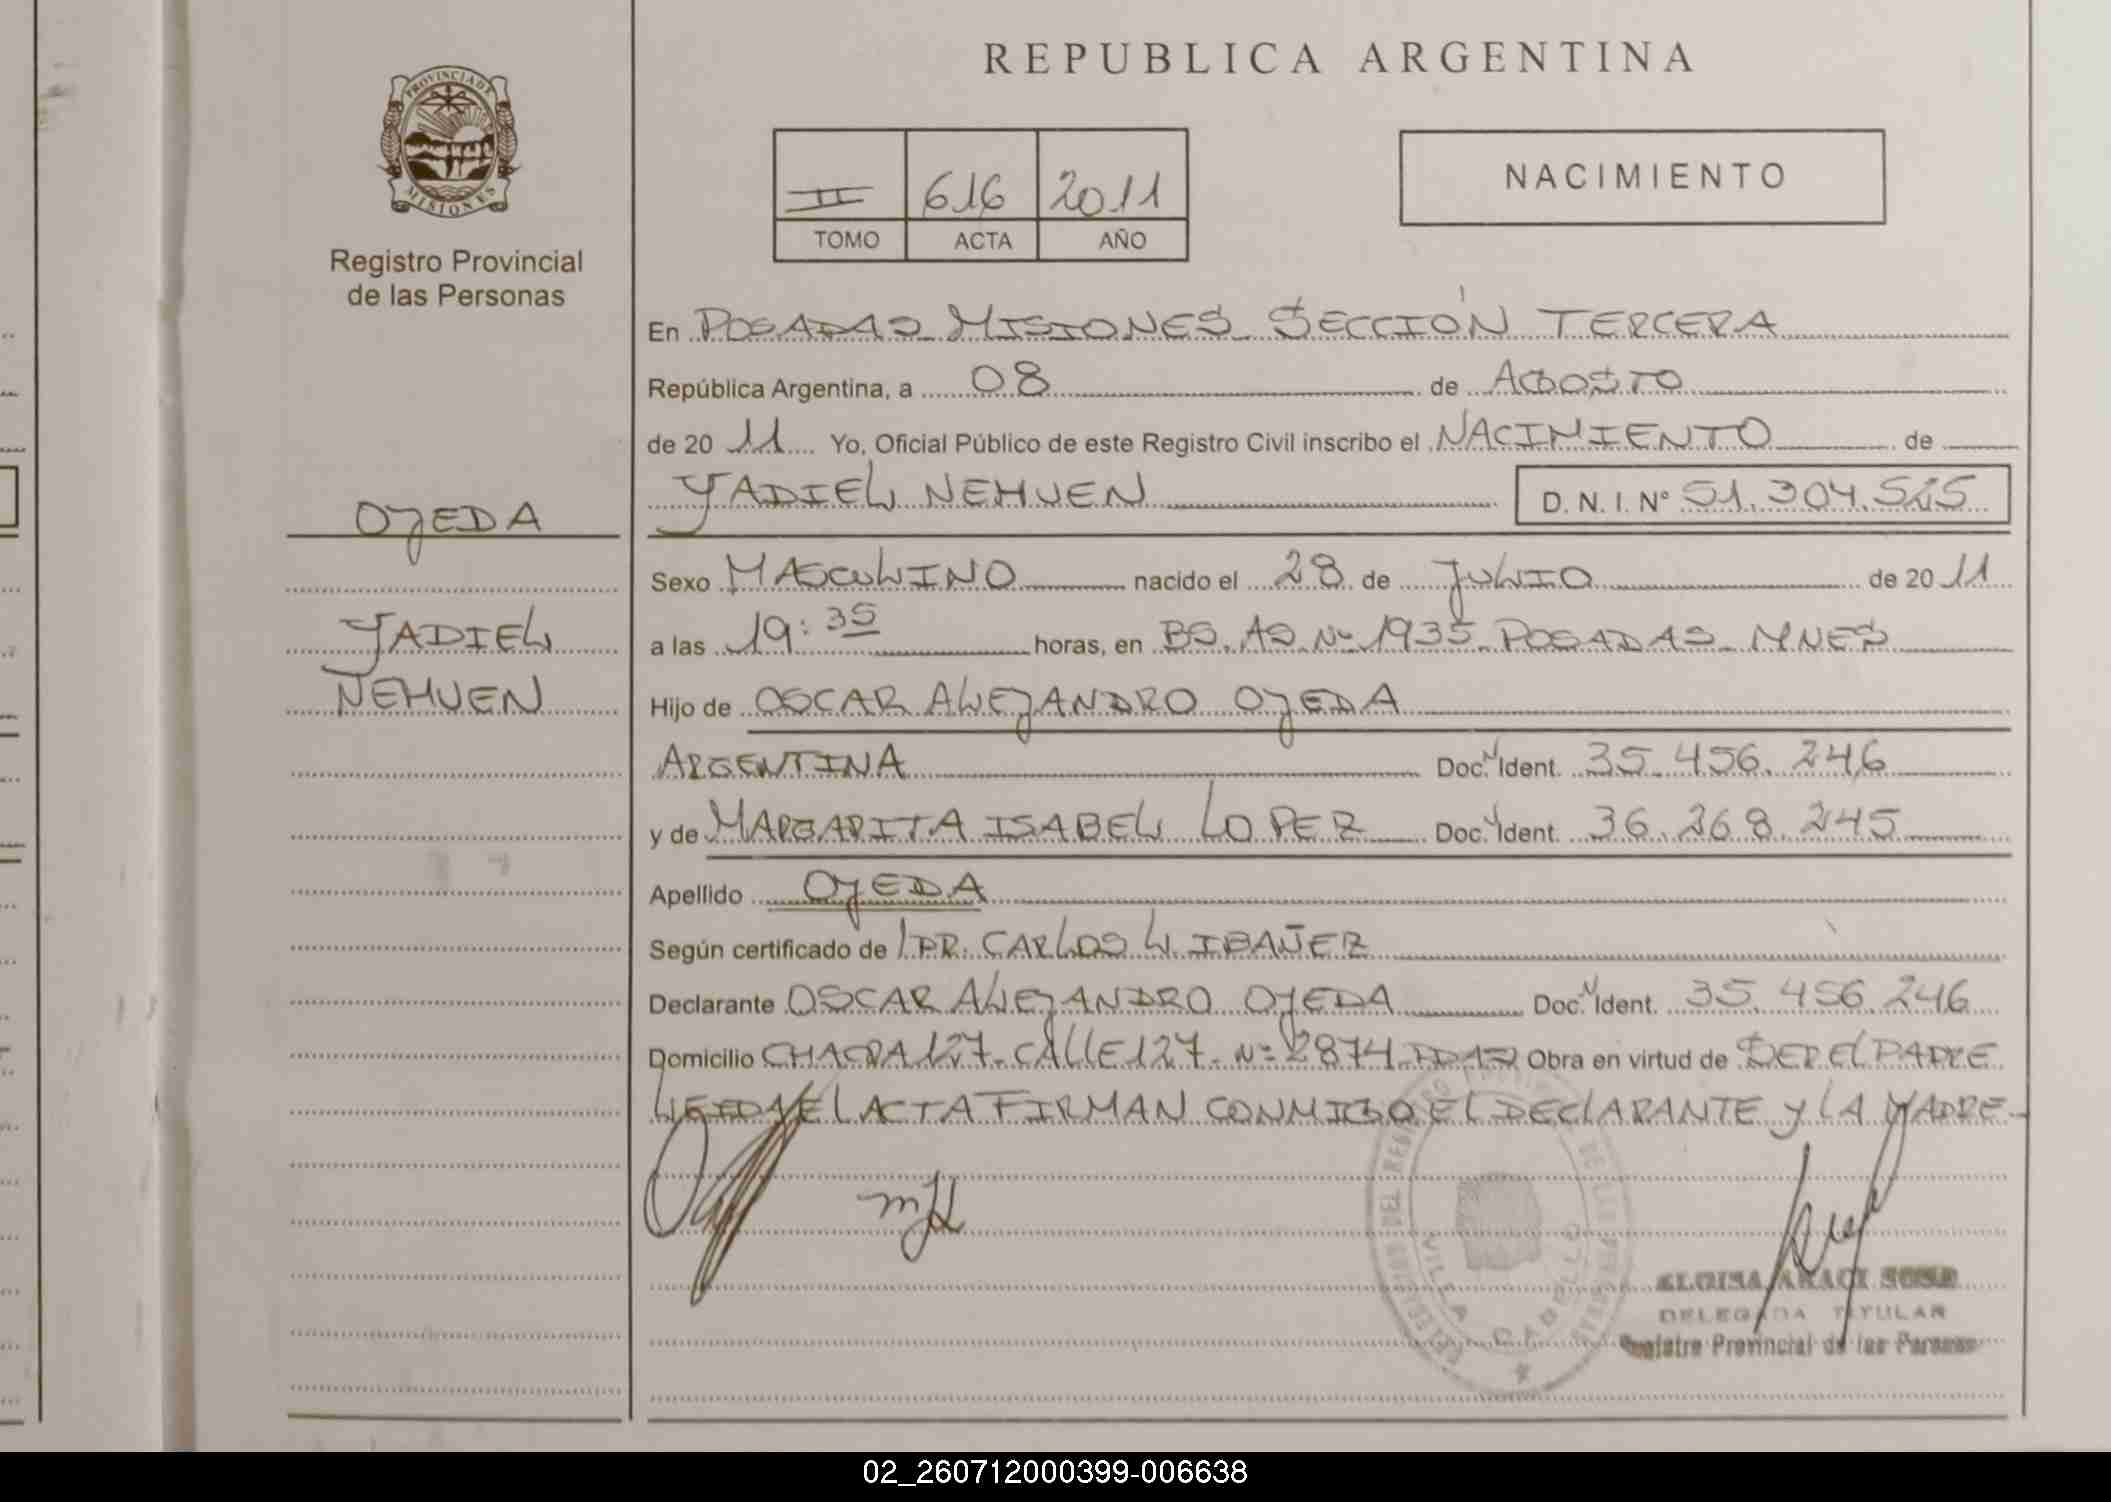 REPUBLICA ARGENTINA
PROVINCIA DE
MISIONES
Registro Provincial
de las Personas
II 616 2011
TOMO ACTA AÑO
NACIMIENTO
En POSADAS MISIONES SECCIÓN TERCERA
República Argentina, a 08 de AGOSTO
de 20 11 Yo, Oficial Público de este Registro Civil inscribo el NACIMIENTO de
YADIEL NEHUEN D. N. I. Nº 51.304.525
OJEDA
YADIEL
NEHUEN
Sexo MASCULINO nacido el 28 de JULIO de 20 11
a las 19:35 horas, en BS. AS. Nº 1935 POSADAS MNES
Hijo de OSCAR ALEJANDRO OJEDA
ARGENTINA Doc. Ident. 35.456.246
y de MARGARITA ISABEL LOPEZ Doc. Ident. 36.268.245
Apellido OJEDA
Según certificado de DR. CARLOS L. IBAÑEZ
Declarante OSCAR ALEJANDRO OJEDA Doc. Ident. 35.456.246
Domicilio CHACRA 127. CALLE 127. Nº 2874 Obra en virtud de SER EL PADRE
LEIDA EL ACTA FIRMAN CONMIGO EL DECLARANTE Y LA MADRE
VILLA CABELLO
DELEGADA TITULAR
Registro Provincial de las Personas
02_260712000399-006638